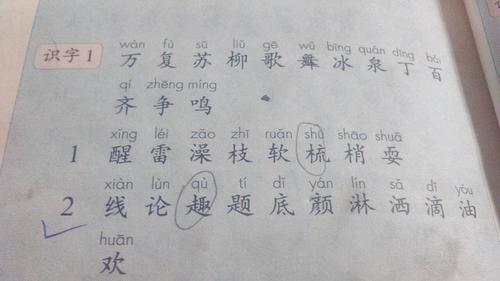 wàn fù sū liǔ gē wǔ bīng quán dīng bǎi
识字1 万 复 苏 柳 歌 舞 冰 泉 丁 百
qí zhēng míng
齐 争 鸣
xǐng léi zǎo zhī ruǎn shū shāo shuǎ
1 醒 雷 澡 枝 软 梳 梢 耍
xiàn lùn qù tí dǐ yán lín sǎ dī yóu
2 线 论 趣 题 底 颜 淋 洒 滴 油
huān
欢